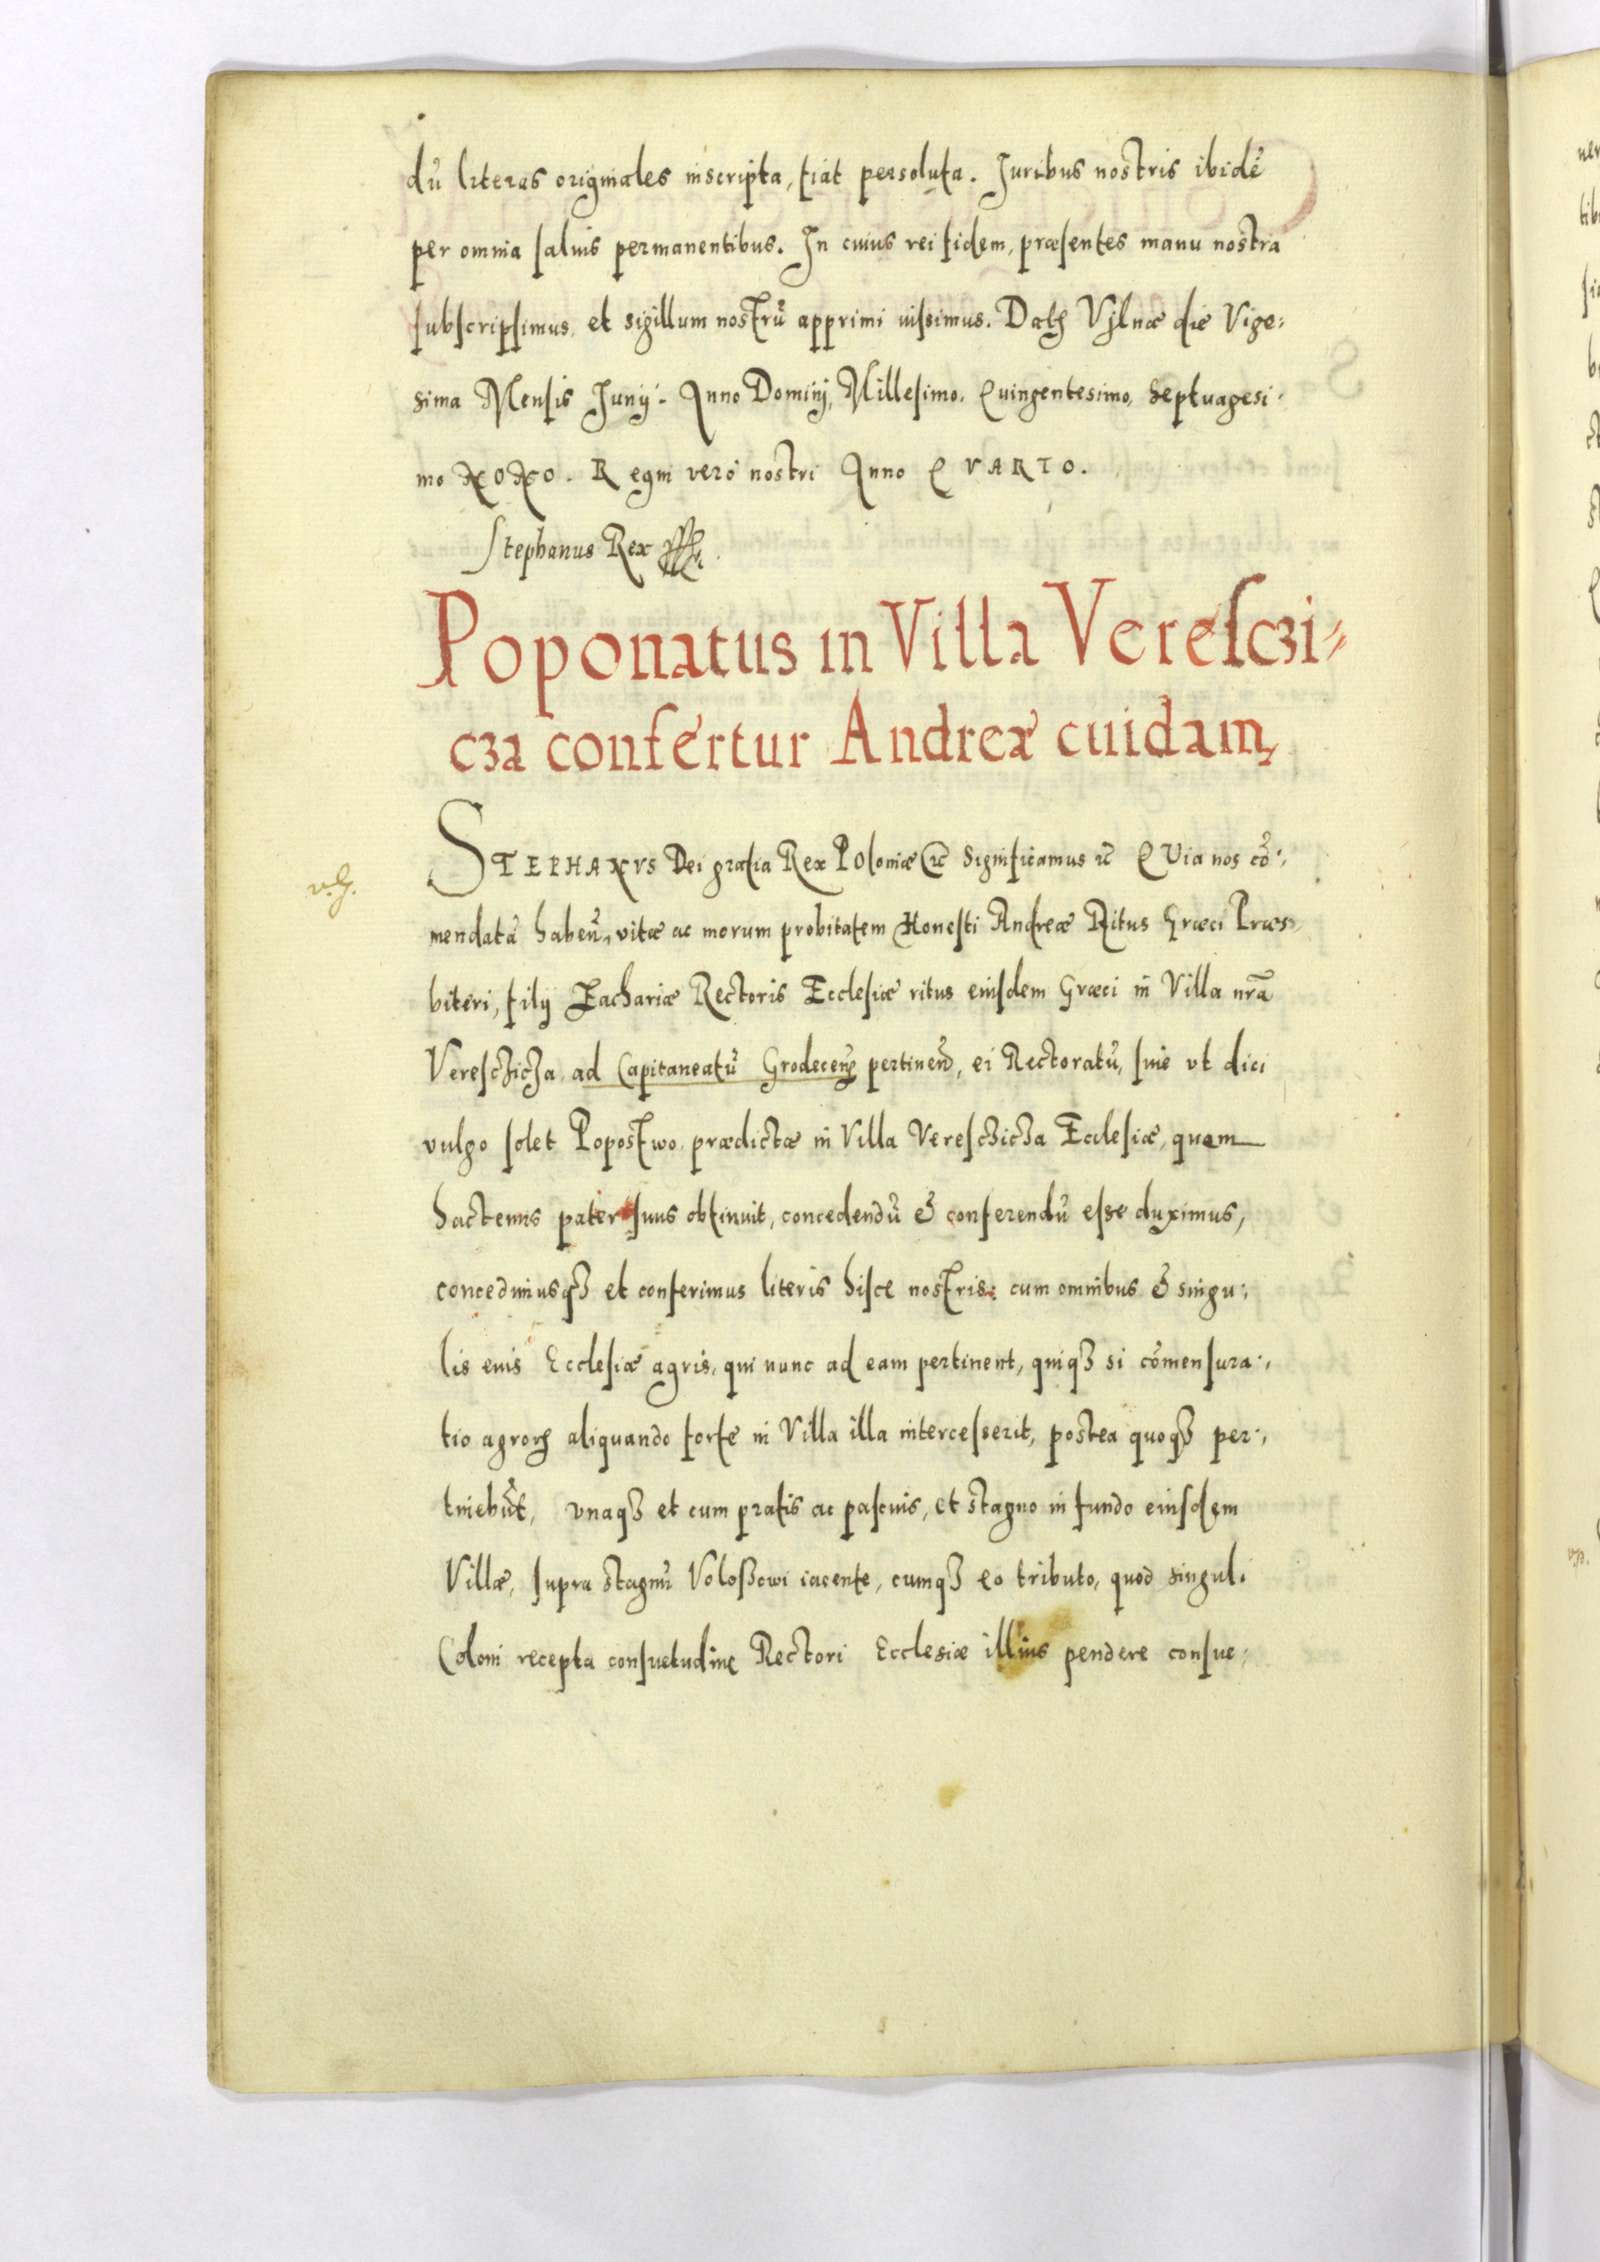 dũ literas originales inscripta, fiát persoluta. Juribus nostris ibidẽ
per omnia saluis permanentibus. In cuius rei fidem, præsentes manu nostra
subscripsimus, et sigillum nostrũ apprimi iussimus. Datꝝ Vilnæ die Vige:
sima Mensis Junij. Anno Dominj, Millesimo, Quingentesimo, septuagesi:
mo NONO. Regni verò nostri Anno QVARTO.
Stephanus Rex
Poponatus in Villa Veresczi=
cza confertur Andreæ cuidam,
STEPHANVS Dei gratia Rex Poloniæ &c̃ Significamus &c̃ QVia nos cõ:
mendatã habeñ, vitæ ac morum probitatem Honesti Andreæ Ritus Græci Præs:
biteri, filij Zachariæ Rectoris Ecclesiæ ritus eiusdem Græci in Villa nr̃a
Veresczicza, ad Capitaneatũ Grodeceñ pertineñ, ei Rectoratũ, siue vt dici
vulgo solet Popostwo, prædictæ in Villa Veresczicza Ecclesiæ, quem
hactenus pater suus obtinuit, concedendũ & conferendũ esse duximus,
concedimusqꝫ et conferimus literis hisce nostris: cum omnibus & singu:
lis euis Ecclesiæ agris, qui nunc ad eam pertinent, quiqꝫ si cõmensura:
tio agroꝝ aliquando forte in Villa illa intercesserit, postea quoqꝫ per:
tinebũt, vnaqꝫ et cum pratis ac pascuis, et stagno in fundo eiusdem
Villæ, supra stagnũ Voloßowi iacente, cumqꝫ eo tributo, quod singuli
Coloni recepta consuetudine Rectori Ecclesiæ illius pendere consue: